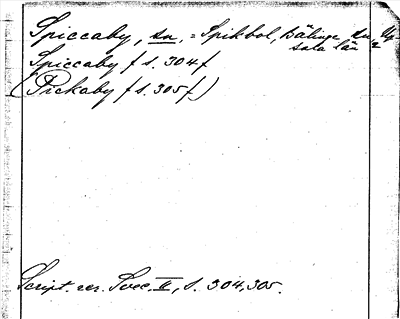 Spiccaby, sn. = Spikbol, Bälinge sn, Up-
sala län
Spiccaby f s. 304 f
(Pickaby f s. 305 f)
Script. rer. Svec. II, s. 304, 305.